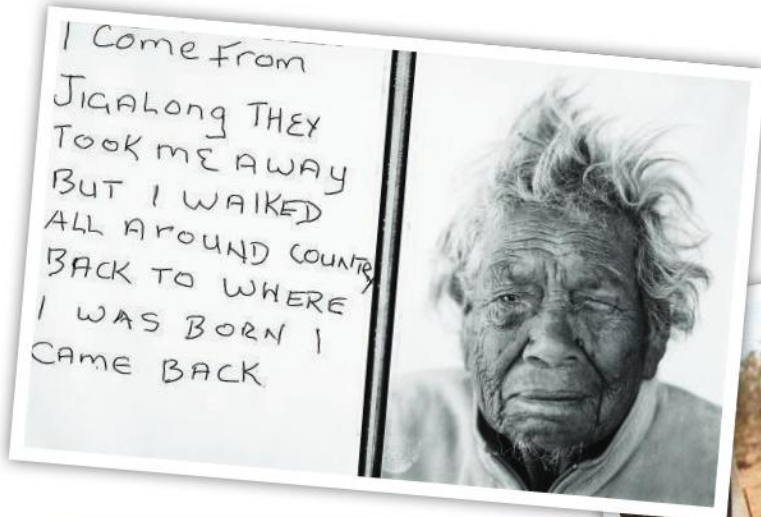 I Come From
JIGALONg THEY
TOOK ME AWAY
BUT I WAlKED
ALL ArOUND COUNTRY
BACK TO WHERE
I WAS BORN I
CAME BACK